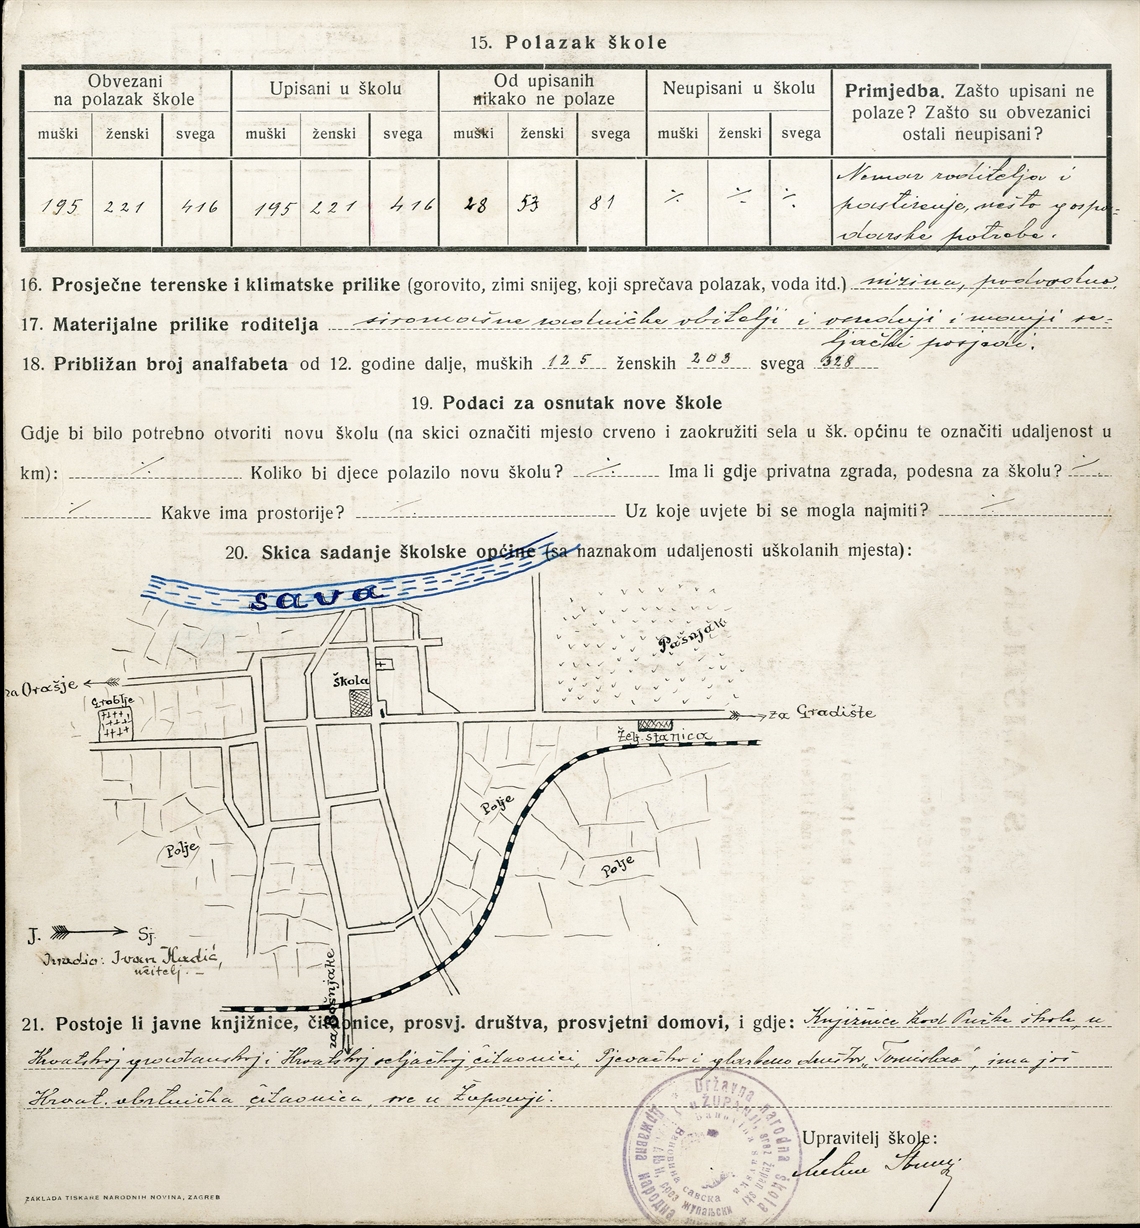 15. Polazak škole
Obvezani na polazak škole
Upisani u školu
Od upisanih nikako ne polaze
Neupisani u školu
Primjedba. Zašto upisani ne polaze? Zašto su obvezanici ostali neupisani?
muški ženski svega muški ženski svega muški ženski svega muški ženski svega
195 221 416 195 221 416 28 53 81 ·/. ·/. ·/.
Nemar roditelja i
pastirenje, nešto gospo-
darske potrebe.
16. Prosječne terenske i klimatske prilike (gorovito, zimi snijeg, koji sprečava polazak, voda itd.) nizina, podvodno.
17. Materijalne prilike roditelja siromašne radničke obitelji i srednji i manji se-
ljački posjedi.
18. Približan broj analfabeta od 12. godine dalje, muških 125 ženskih 203 svega 328
19. Podaci za osnutak nove škole
Gdje bi bilo potrebno otvoriti novu školu (na skici označiti mjesto crveno i zaokružiti sela u šk. općinu te označiti udaljenost u
km): ·/. Koliko bi djece polazilo novu školu? ·/. Ima li gdje privatna zgrada, podesna za školu? ·/.
·/. Kakve ima prostorije? ·/. Uz koje uvjete bi se mogla najmiti? ·/.
20. Skica sadanje školske općine (sa naznakom udaljenosti uškolanih mjesta):
Sava
Pašnjak
za Orašje
Škola
Groblje
za Gradište
Želj. stanica
Polje
Polje
Polje
J. Sj.
Izradio: Ivan Hadić,
učitelj.
za Bošnjake
21. Postoje li javne knjižnice, čitaonice, prosvj. društva, prosvjetni domovi, i gdje: Knjižnice kod Pučke škole, u
Hrvatskoj građanskoj i Hrvatskoj seljačkoj čitaonici, Pjevačko i glazbeno društvo „Tomislav", ima još
Hrvat. obrtnička čitaonica, sve u Županji.
Državna narodna škola
u ŽUPANJI, srez županjski
Banovina savska
Државна народна
срез жупањски
Бановина савска
Upravitelj škole:
ZAKLADA TISKARE NARODNIH NOVINA, ZAGREB